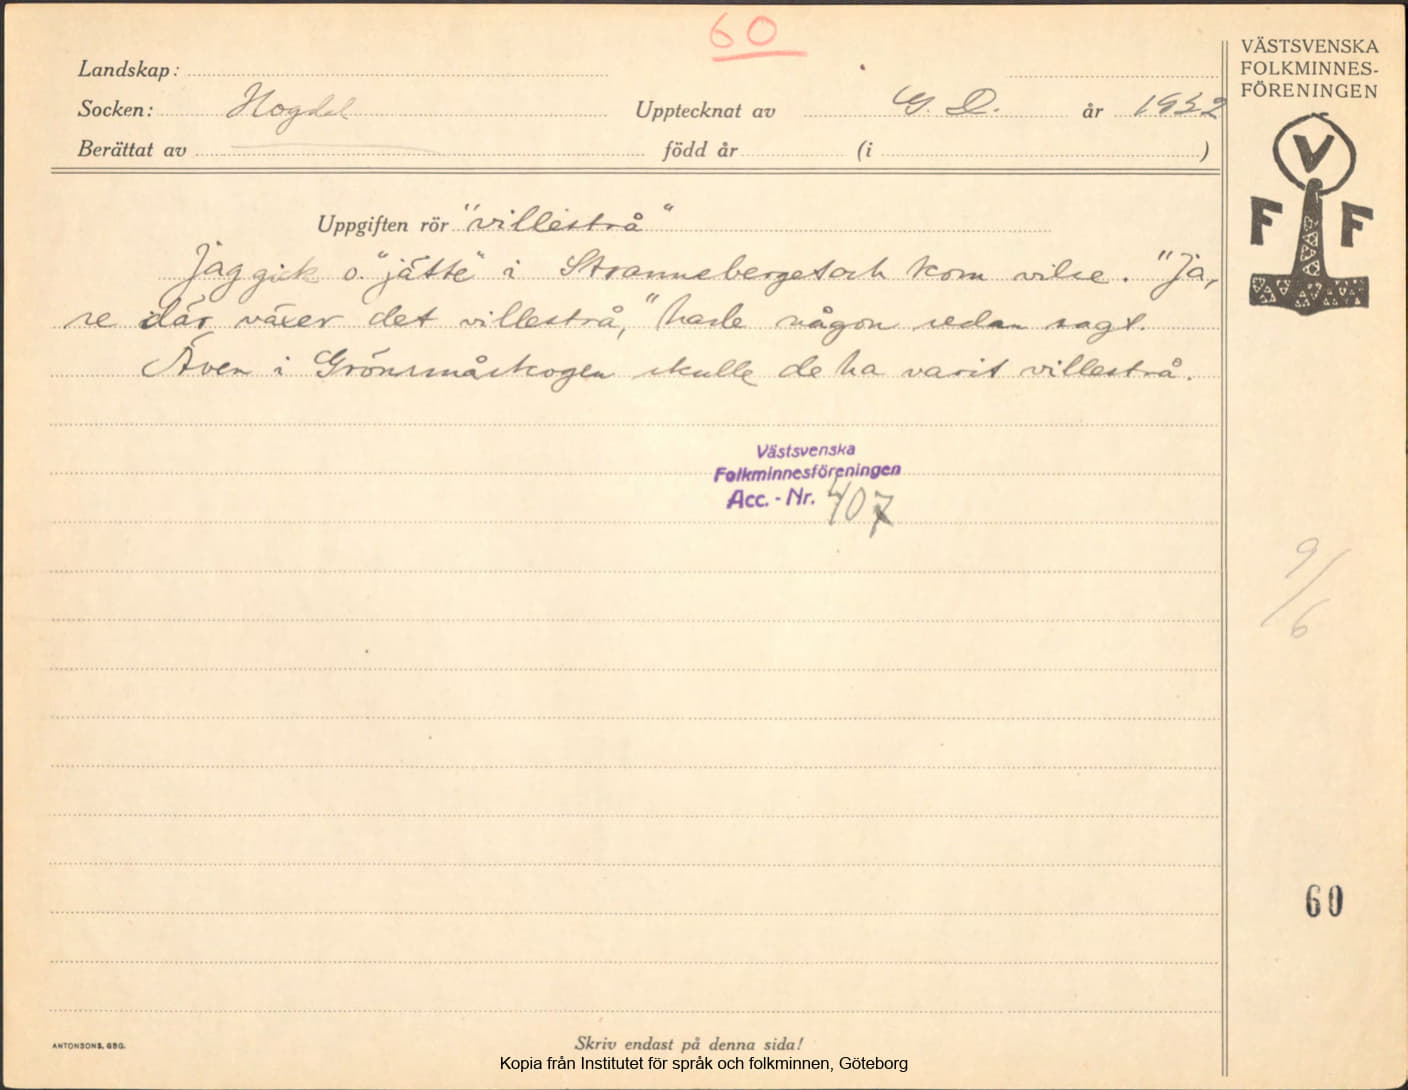 60
Landskap:
Socken: Hogdal
Upptecknat av G. D. år 1932
Berättat av
född år (i )
VÄSTSVENSKA
FOLKMINNES-
FÖRENINGEN
V
F F
Uppgiften rör "villestrå"
Jag gick o. "jätte" i Strannebergetoch kom vilse. "Ja,
se där växer det villestrå," hade någon sedan sagt.
Även i Grönsmåskogen skulle de ha varit villestrå.
Västsvenska
Folkminnesföreningen
Acc. - Nr. 407
9/6
60
ANTONSONS, GBG.
Skriv endast på denna sida!
Kopia från Institutet för språk och folkminnen, Göteborg